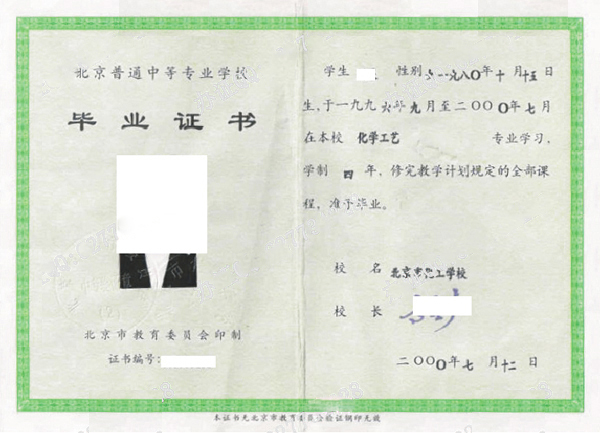 北京普通中等专业学校
毕业证书
北京市教育委员会印制
证书编号:
学生 性别 一九八〇年十月十五日
生,于一九九六年九月至二〇〇〇年七月
在本校 化学工艺 专业学习,
学制 四 年,修完教学计划规定的全部课
程,准予毕业。
校 名 北京市化工学校
校 长
二〇〇〇年七月十二日
本证书无北京市教育委员会验证钢印无效